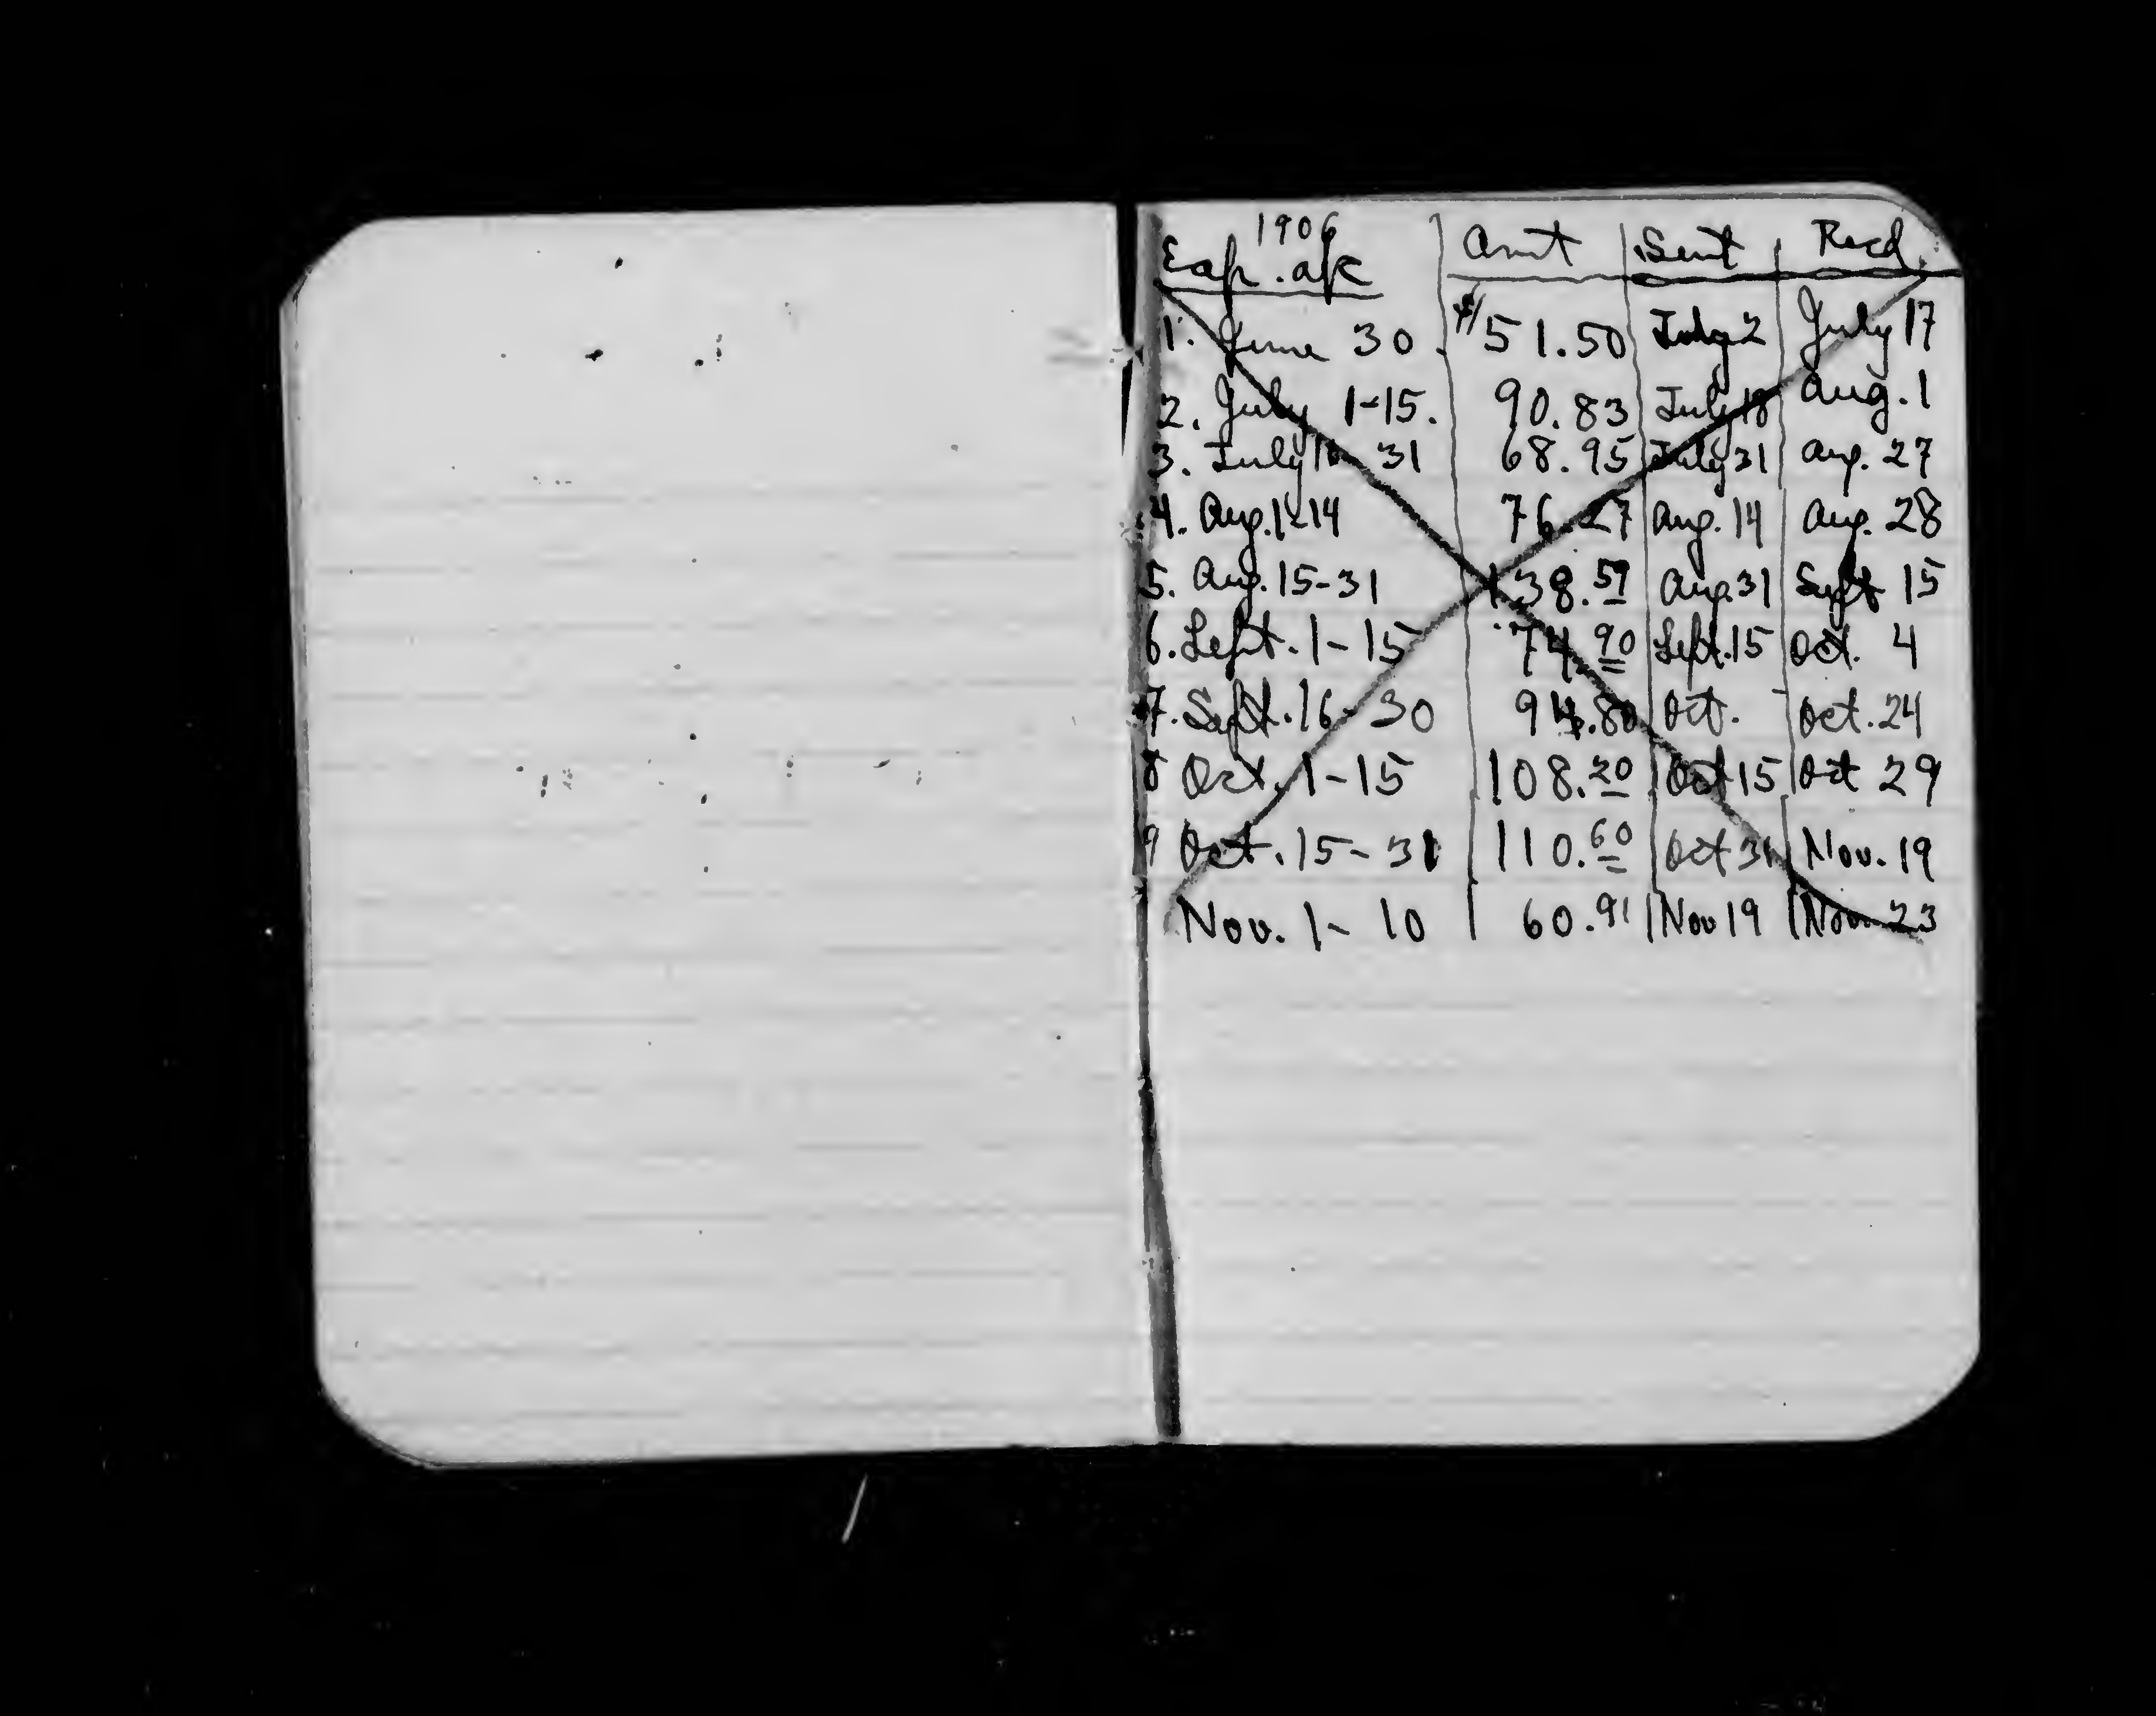 1906
Exp. a/c Amt Sent Recd.
1. June 30. $51.50 July 2 July 17
2. July 1-15. 90.83 July 18 Aug. 1
3. July 16 31 68.95 July 31 Aug. 27
4. Aug. 1-14 76.27 Aug. 14 Aug. 28
5. Aug. 15-31 138.59 Aug. 31 Sept 15
6. Sept. 1-15 74.90 Sept. 15 Oct. 4
7. Sept. 16-30 94.80 Oct. Oct. 24
8 Oct. 1-15 108.20 Oct 15 Oct 29
9 Oct. 15-31 110.60 Oct 31 Nov. 19
Nov. 1-10 60.91 Nov 19 Nov. 23